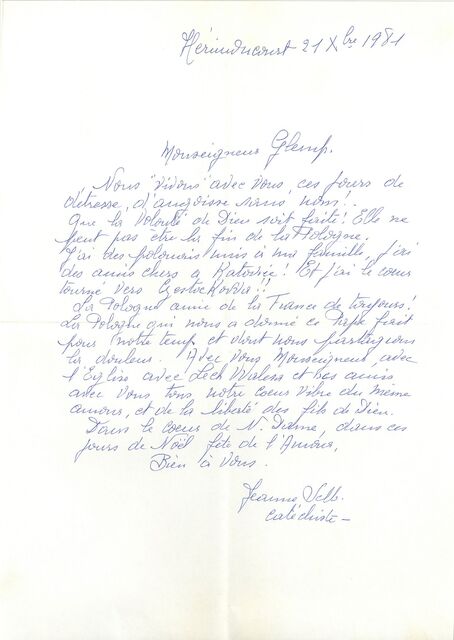 Hérimoncourt 21 Xbre 1981
Monseigneur Glemp.
Nous "vivons" avec vous, ces jours de
détresse, d'angoisse sans nom..
Que la Volonté de Dieu soit faite! Elle ne
peut pas être la fin de la Pologne.
J'ai des polonais unis à ma famille, j'ai
des amis chers à Katowice! Et j'ai le cœur
tourné vers Czestochowa!!
La Pologne amie de la France de toujours!
La Pologne qui nous a donné ce Pape fait
pour notre temps et dont nous partageons
la douleur. Avec vous Monseigneur, avec
l'Eglise avec Lech Walesa et ses amis
avec vous tous notre cœur vibre du même
amour, et de la liberté des fils de Dieu.
Dans le coeur de N. Dame, dans ces
jours de Noël fête de l'Amour,
Bien à Vous.
Jeanne
catéchiste -